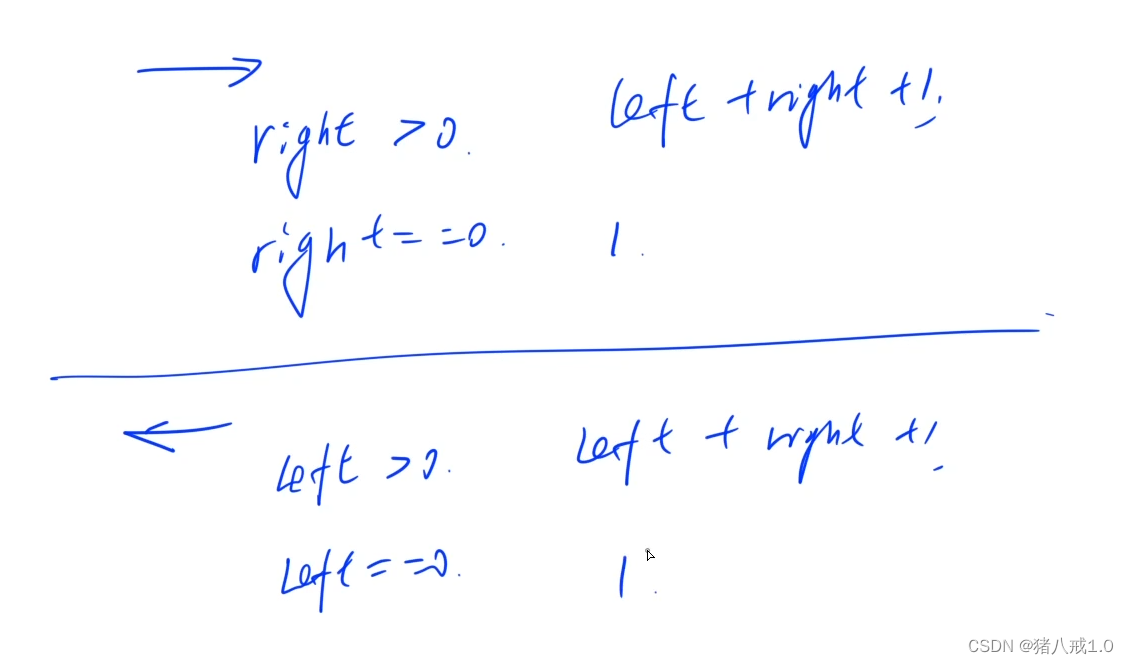 right >0. left +right +1.
right ==0. 1.
left >0. left + right +1.
left ==0. 1.
CSDN @猪八戒1.0